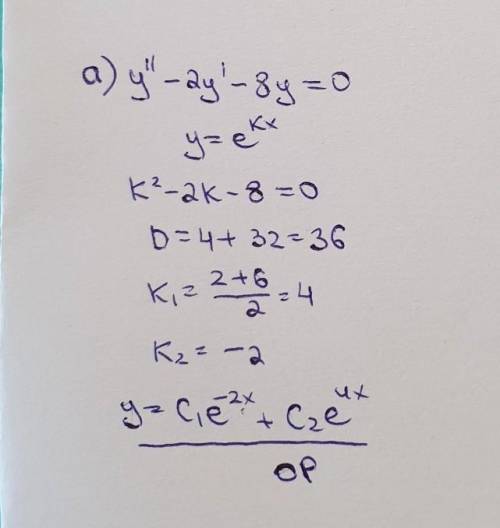 а) y'' - 2y' - 8y = 0
y = e^{kx}
k² - 2k - 8 = 0
D = 4 + 32 = 36
k₁ = \frac{2+6}{2} = 4
k₂ = -2
y = C₁e^{-2x} + C₂e^{4x}
ОР